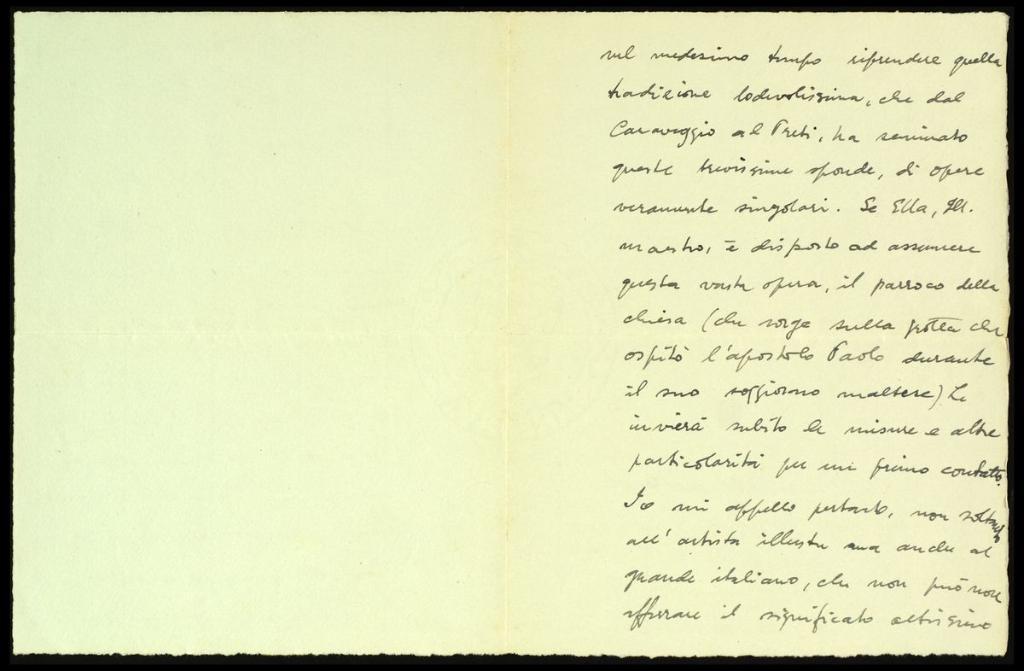 nel medesimo tempo riprendere quella
tradizione lodevolissima, che dal
Caravaggio al Preti, ha seminato
queste sponde, di opere
veramente singolari. Se Ella, Ill.
maestro, è disposto ad assumere
questa vasta opera, il parroco della
chiesa (che sorge sulla grotta che
ospitò l'apostolo Paolo durante
il suo soggiorno maltese) Le
invierà subito le misure e altre
particolarità per un primo contatto.
Io mi appello pertanto, non soltanto
all'artista illustre ma anche al
grande italiano, che non può non
afferrare il significato altissimo